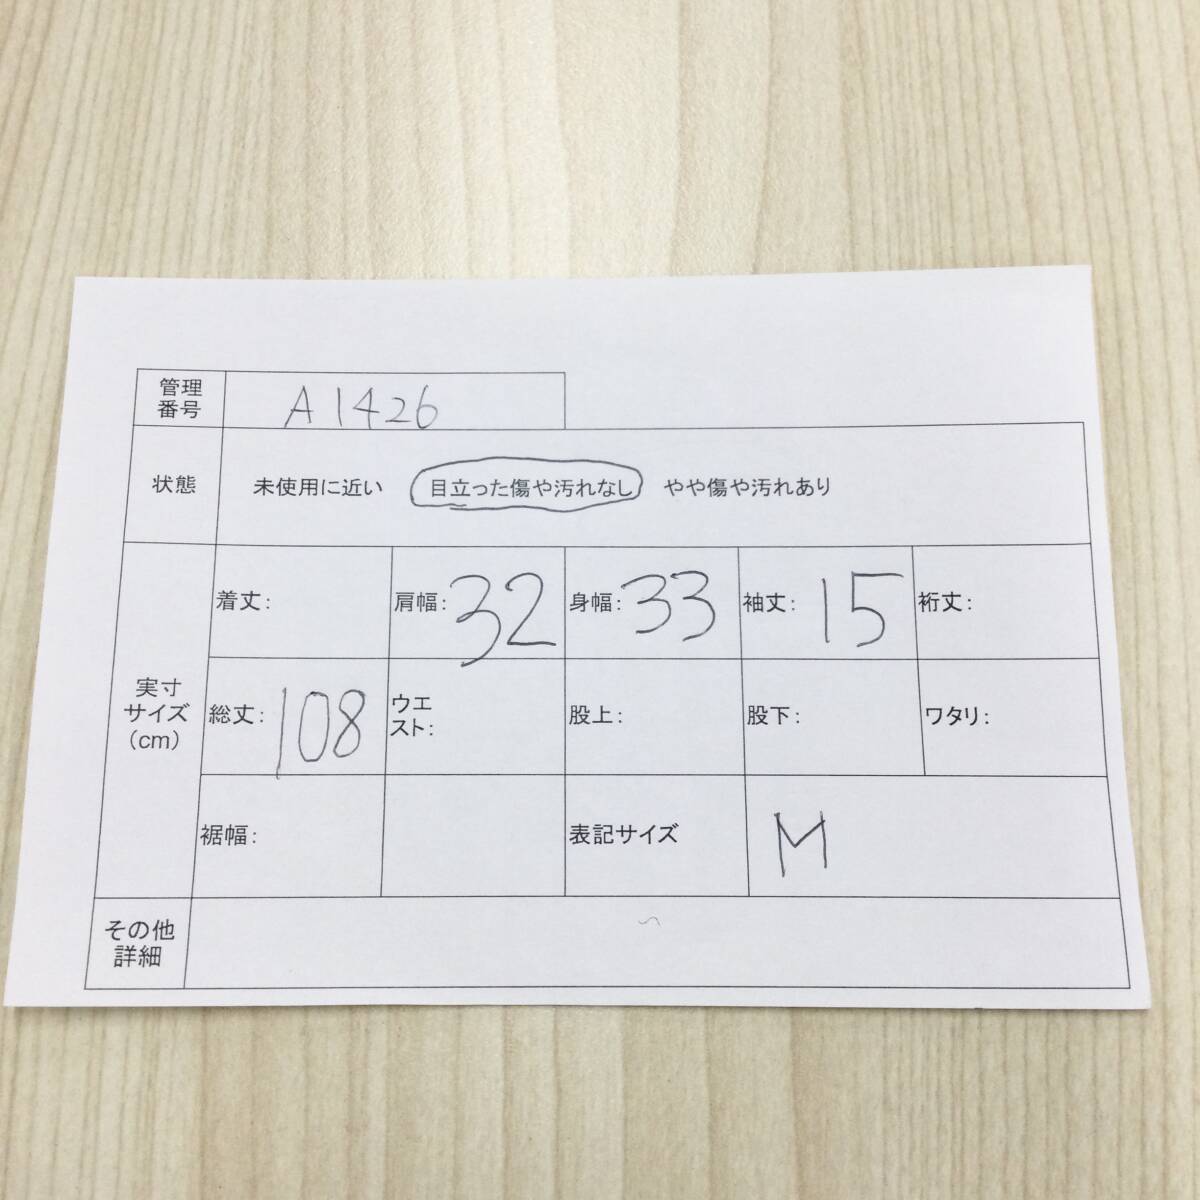 管理
番号
A1426
状態
未使用に近い 目立った傷や汚れなし やや傷や汚れあり
実寸
サイズ
(cm)
着丈: 肩幅: 32 身幅: 33 袖丈: 15 裄丈:
総丈: 108 ウエ
スト: 股上: 股下: ワタリ:
裾幅: 表記サイズ M
その他
詳細